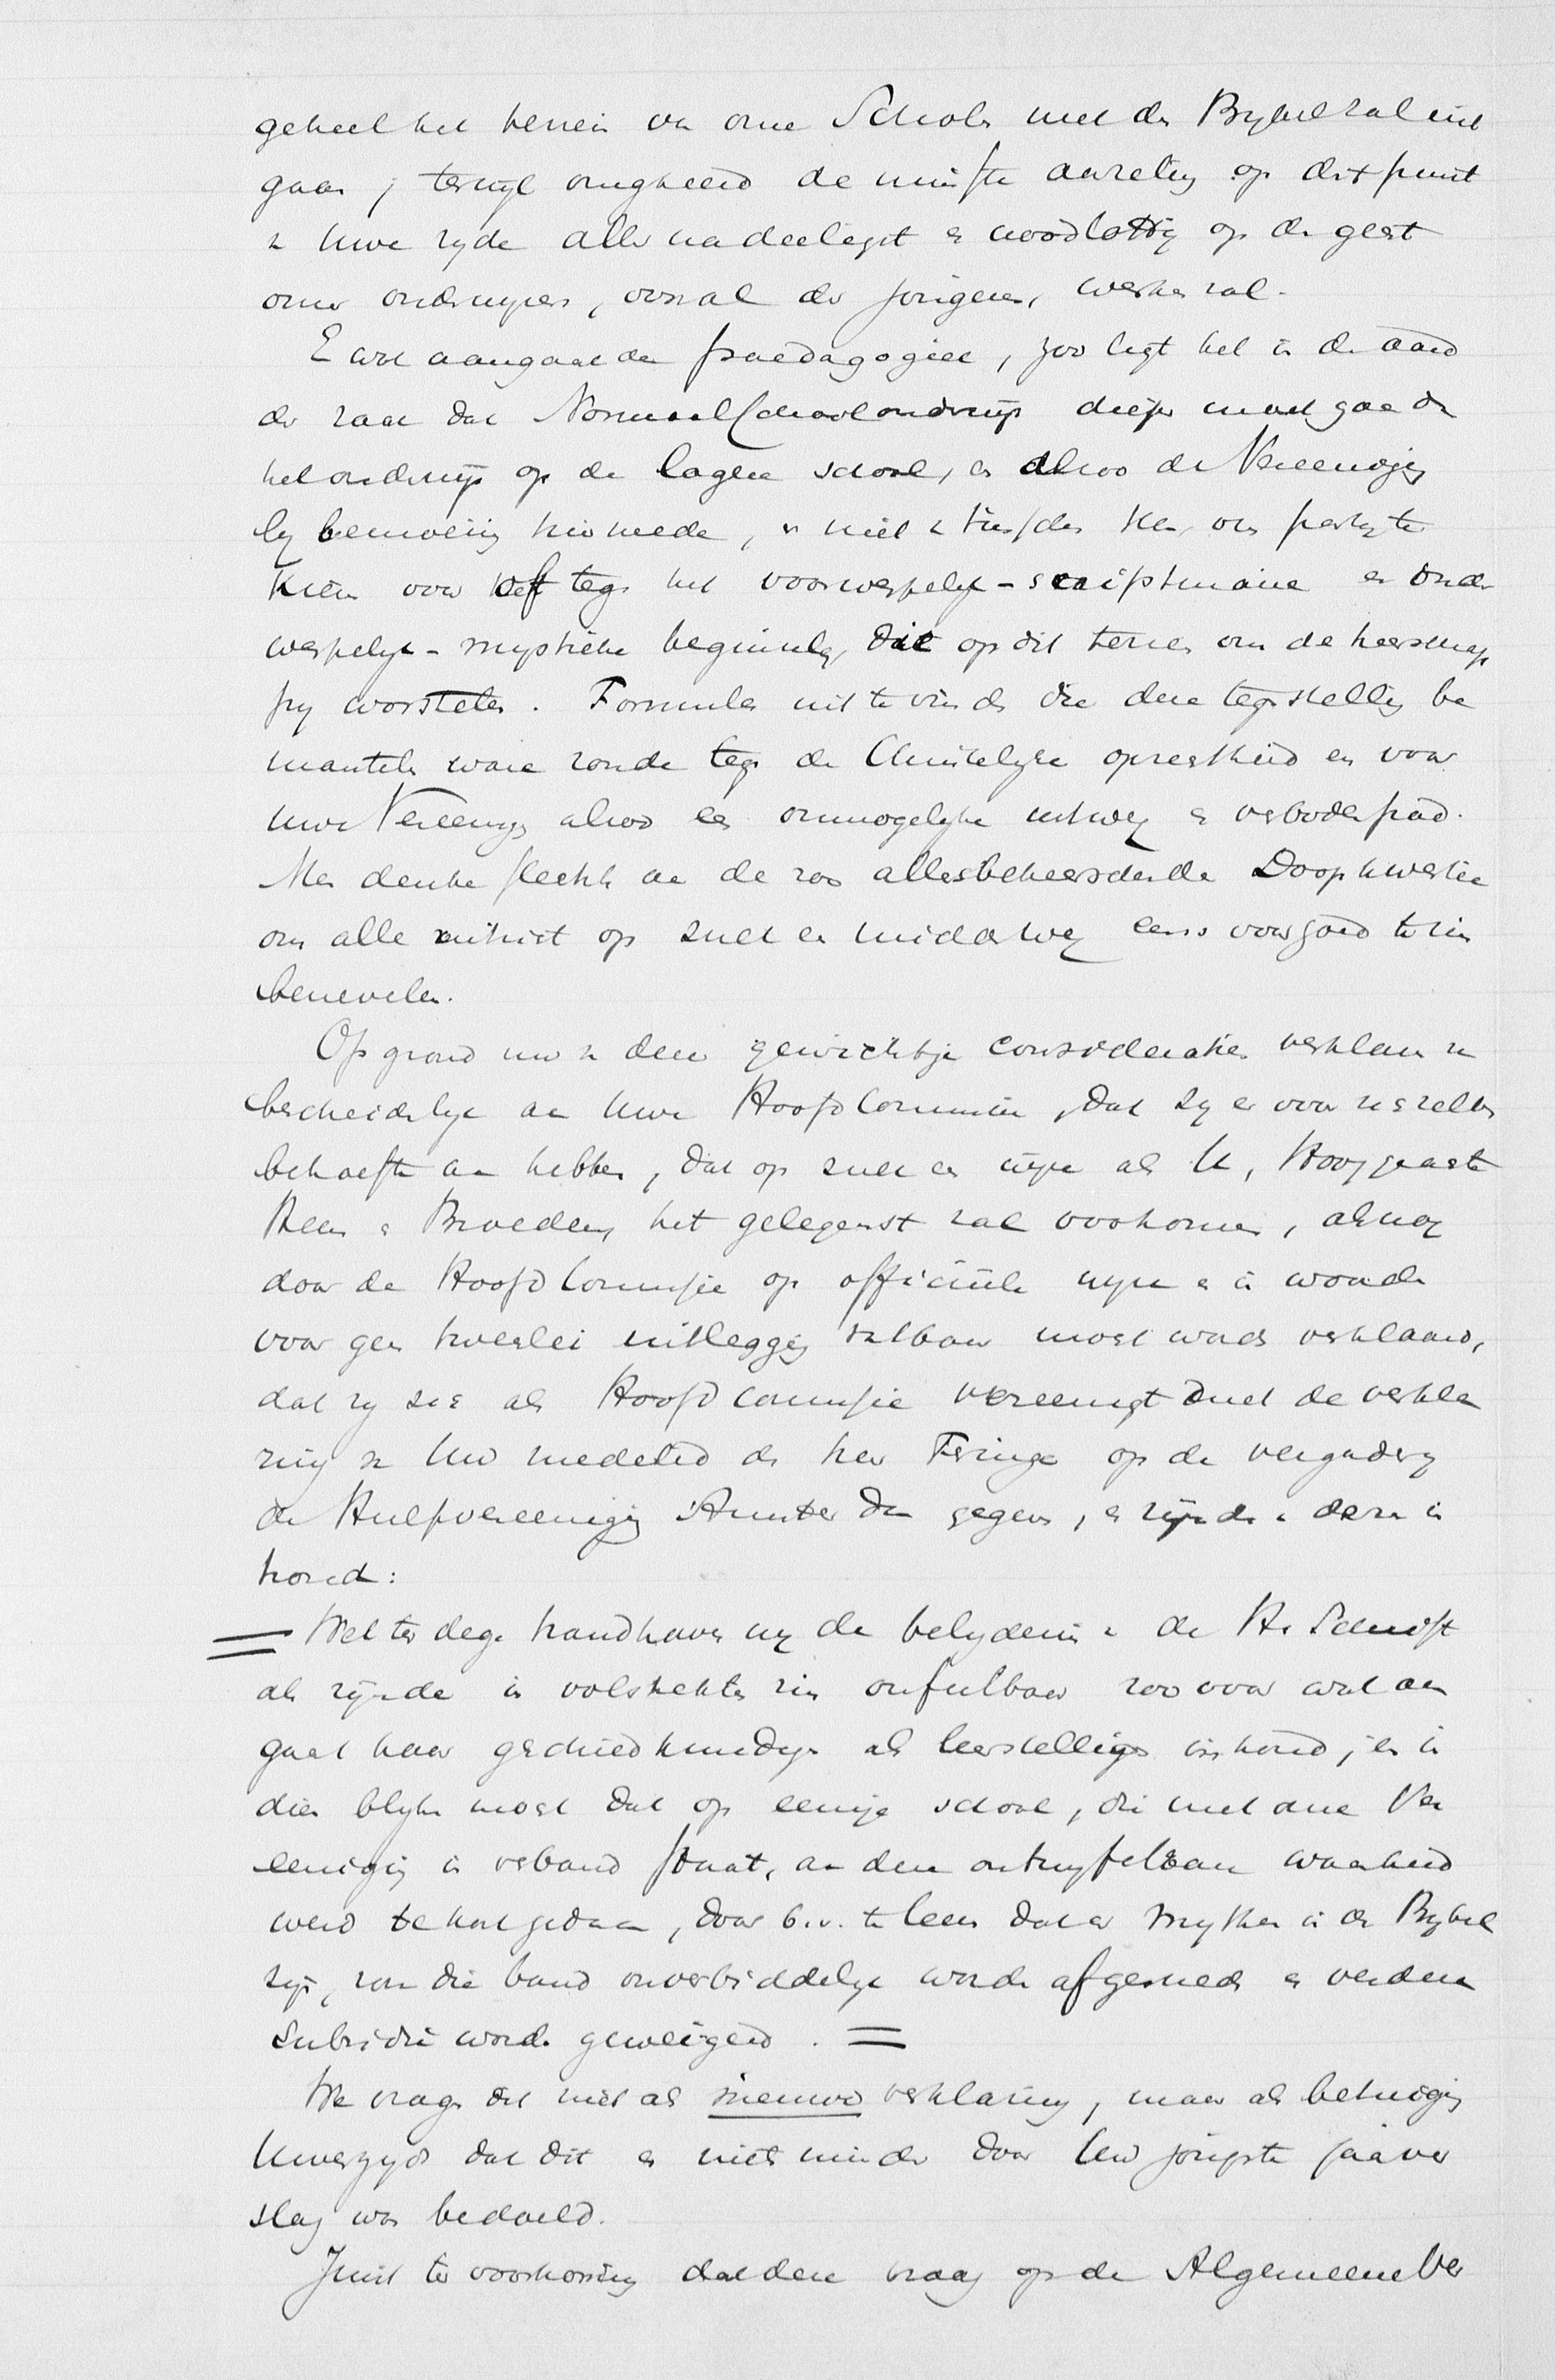 geheel het terrein van onze Scholen met den Bybel zal uit
gaan, terwijl omgekeerd de minste aarzeling op dit punt
van Uwe zyde aller nadeeligst en noodlottig op den geest
onzer onderwyzers, vooral der jongeren, werken zal.
En wat aangaat de paedagogiek, zoo ligt het in den aard
der zaak dat Normaalschoolonderwijs dieper moet gaan dan
het onderwijs op de lagere school, en alzoo de Vereeniging
by bemoeiing hiermede, niet tusschen kan, om party te
kiezen voor of tegen het voorwerpelyk-scripturaire en onder
werpelyk-mystieke beginsel, die op dit terrein om de heerschap
py worstelen. Formules uit te vinden die deze tegenstelling be
mantelen ware zonde tegen de Christelyke oprechtheid en voor
Uwe Vereeniging alzoo een onmogelyke uitweg en verboden pad.
Men denke slechts aan de zoo allesbeheerschende Doopkwestie
om alle uitzicht op zulk een middenweg eens voor goed te zien
benevelen.
Op grond nu van deze gewichtige consideratien verklaren we
bescheidelyk aan Uwe Hoofdcommissie, dat zy er voor zichzelven
behoefte aan hebben, dat op zulk een wyze als U, Hooggeachte
Heeren en Broeders, het gelegenst zal voorkomen, alsnog
door de Hoofdcommissie op officiëele wyze en in woorden
voor geen tweeërlei uitlegging vatbaar moet worden verklaard,
dat zy zich als Hoofdcommissie vereenigt met de verkla
ring van Uw medelid den heer Feringa op de vergadering
der Hulpvereeniging Amsterdam gegeven, en zijnde van dezen in
houd:
= Wel ter dege handhaven wy de belydenis van de H. Schrift
als zijnde in volstrekten zin onfeilbaar zoo voor wat aan
gaat haar geschiedkundigen als leerstelligen inhoud; en in
dien blyken mocht dat op eenige school, die met onze Ver
eeniging in verband staat, aan deze ontwyfelbare waarheid
werd te kort gedaan, door b.v. te leeren dat er mythen in den Bybel
zijn, zou die band onverbiddelyk worden afgesneden en verdere
Subsidie worden geweigerd. =
We vragen dit niet als nieuwe verklaring, maar als betuiging
Uwerzyds dat dit en niets minder door Uw jongste jaarver
slag was bedoeld.
Juist ter voorkoming dat deze vraag op de Algemeene Ver